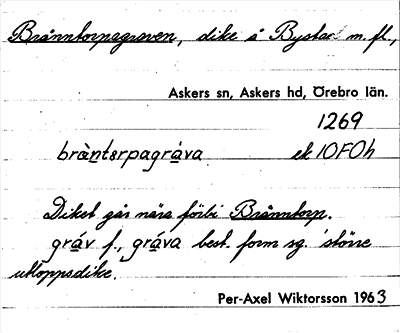 Brånntorpsgraven, dike å Bystad m. fl.,
Askers sn, Askers hd, Örebro län.
1269
brànterpagráva ek 10F0h
Diket går nära förbi Brånntorp.
gráv f., gráva best. form sg. 'större
utloppsdike.
Per-Axel Wiktorsson 1963